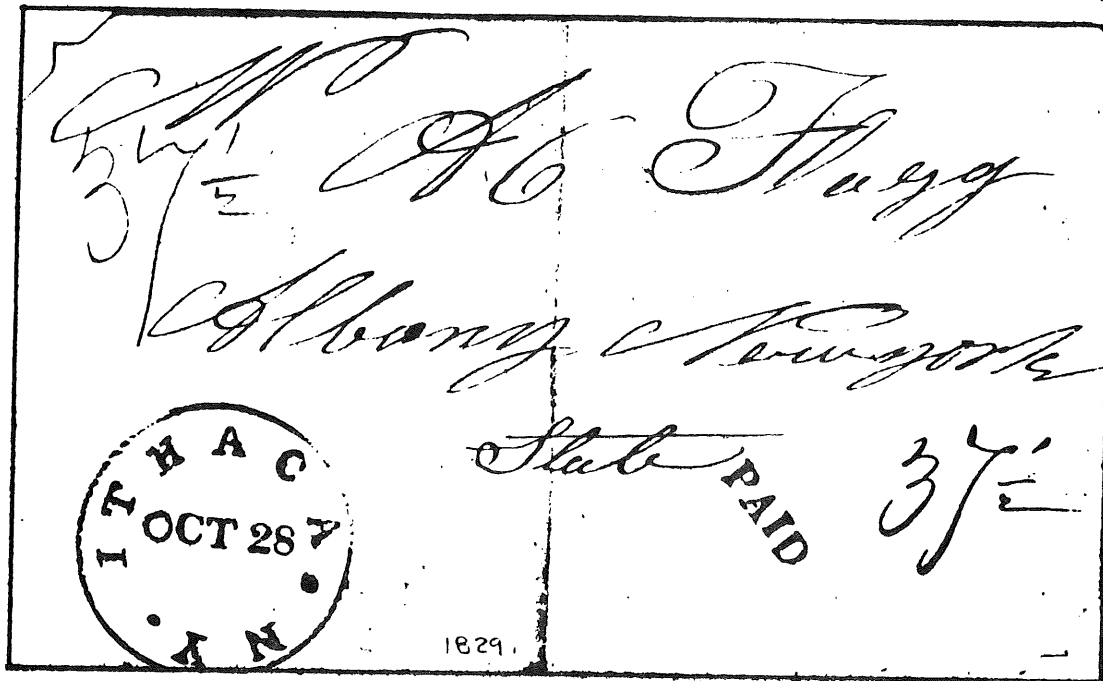 Mr A C Flagg
37 1/2
Albany Newyork
State
PAID
37 1/2
ITHACA. N.Y.
OCT 28
1829.